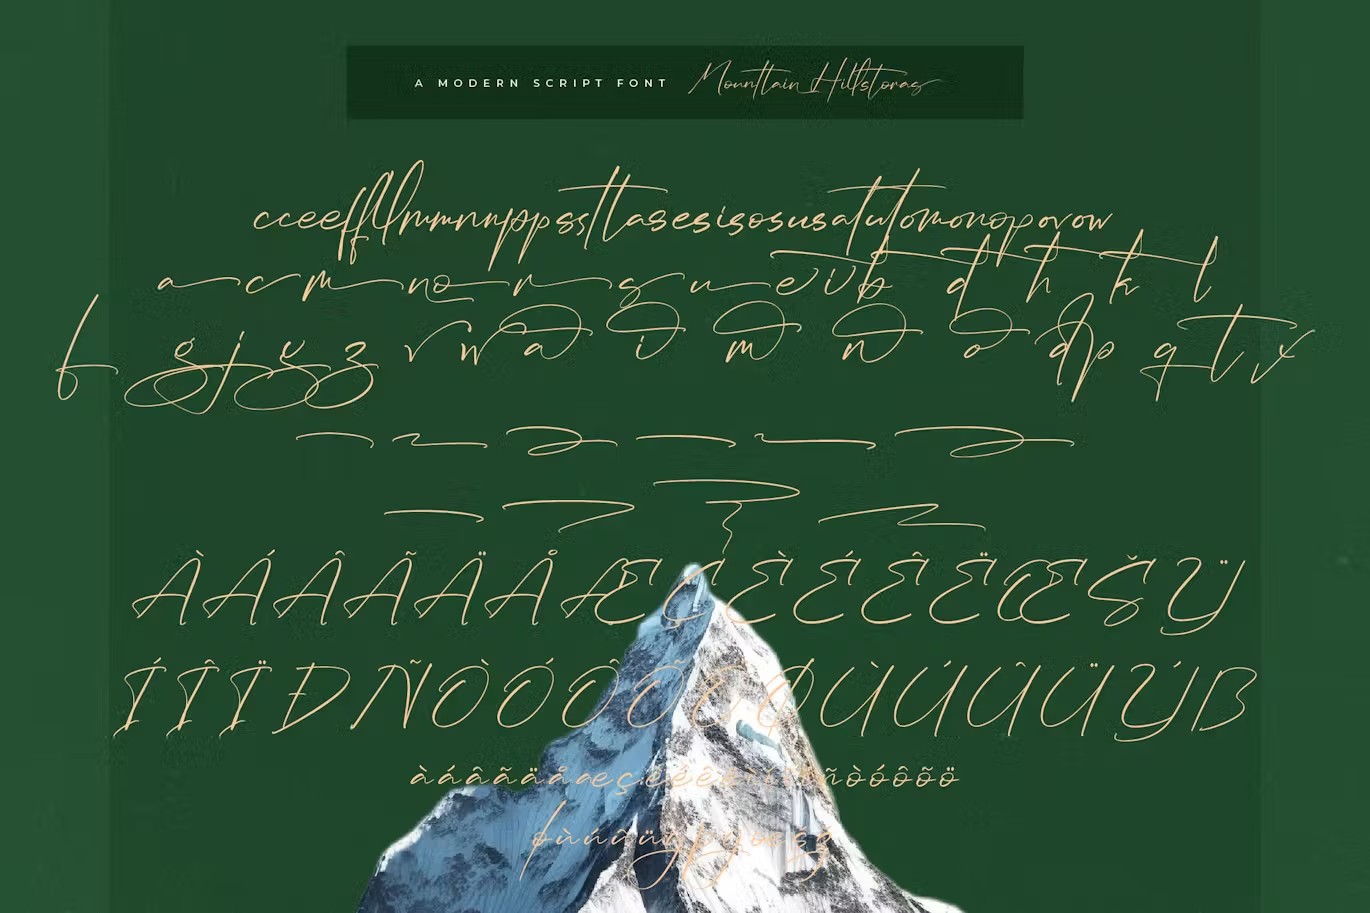 A MODERN SCRIPT FONT Mounttain Hillstoras
cceeffllmmnnppssttasesisosusatutomonopovow
a c m n o r s u e v b d h k l
f g j y z v w a i m n o d p q t x
À Á Â Ã Ä Å Æ Ç È É Ê Ë Œ Š Ÿ
Í Î Ï Ð Ñ Ò Ó Ô Õ Ö Ø Ù Ú Û Ü Ý
à á â ã ä å æ ç è é ê ë ñ ò ó ô õ ö
ø ù ú û ü